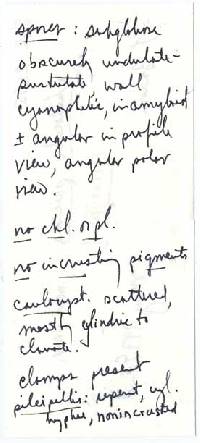 spores: subglobose
obscurely undulate-
pustulate wall
cyanophilic, inamyloid
± angular in profile
view, angular polar
view.
no chl. or pl.
no incrusting pigments
caulocyst. scattered,
mostly cylindric to
clavate.
clamps present
pileipellis: repent, cyl.
hyphae, nonincrusted